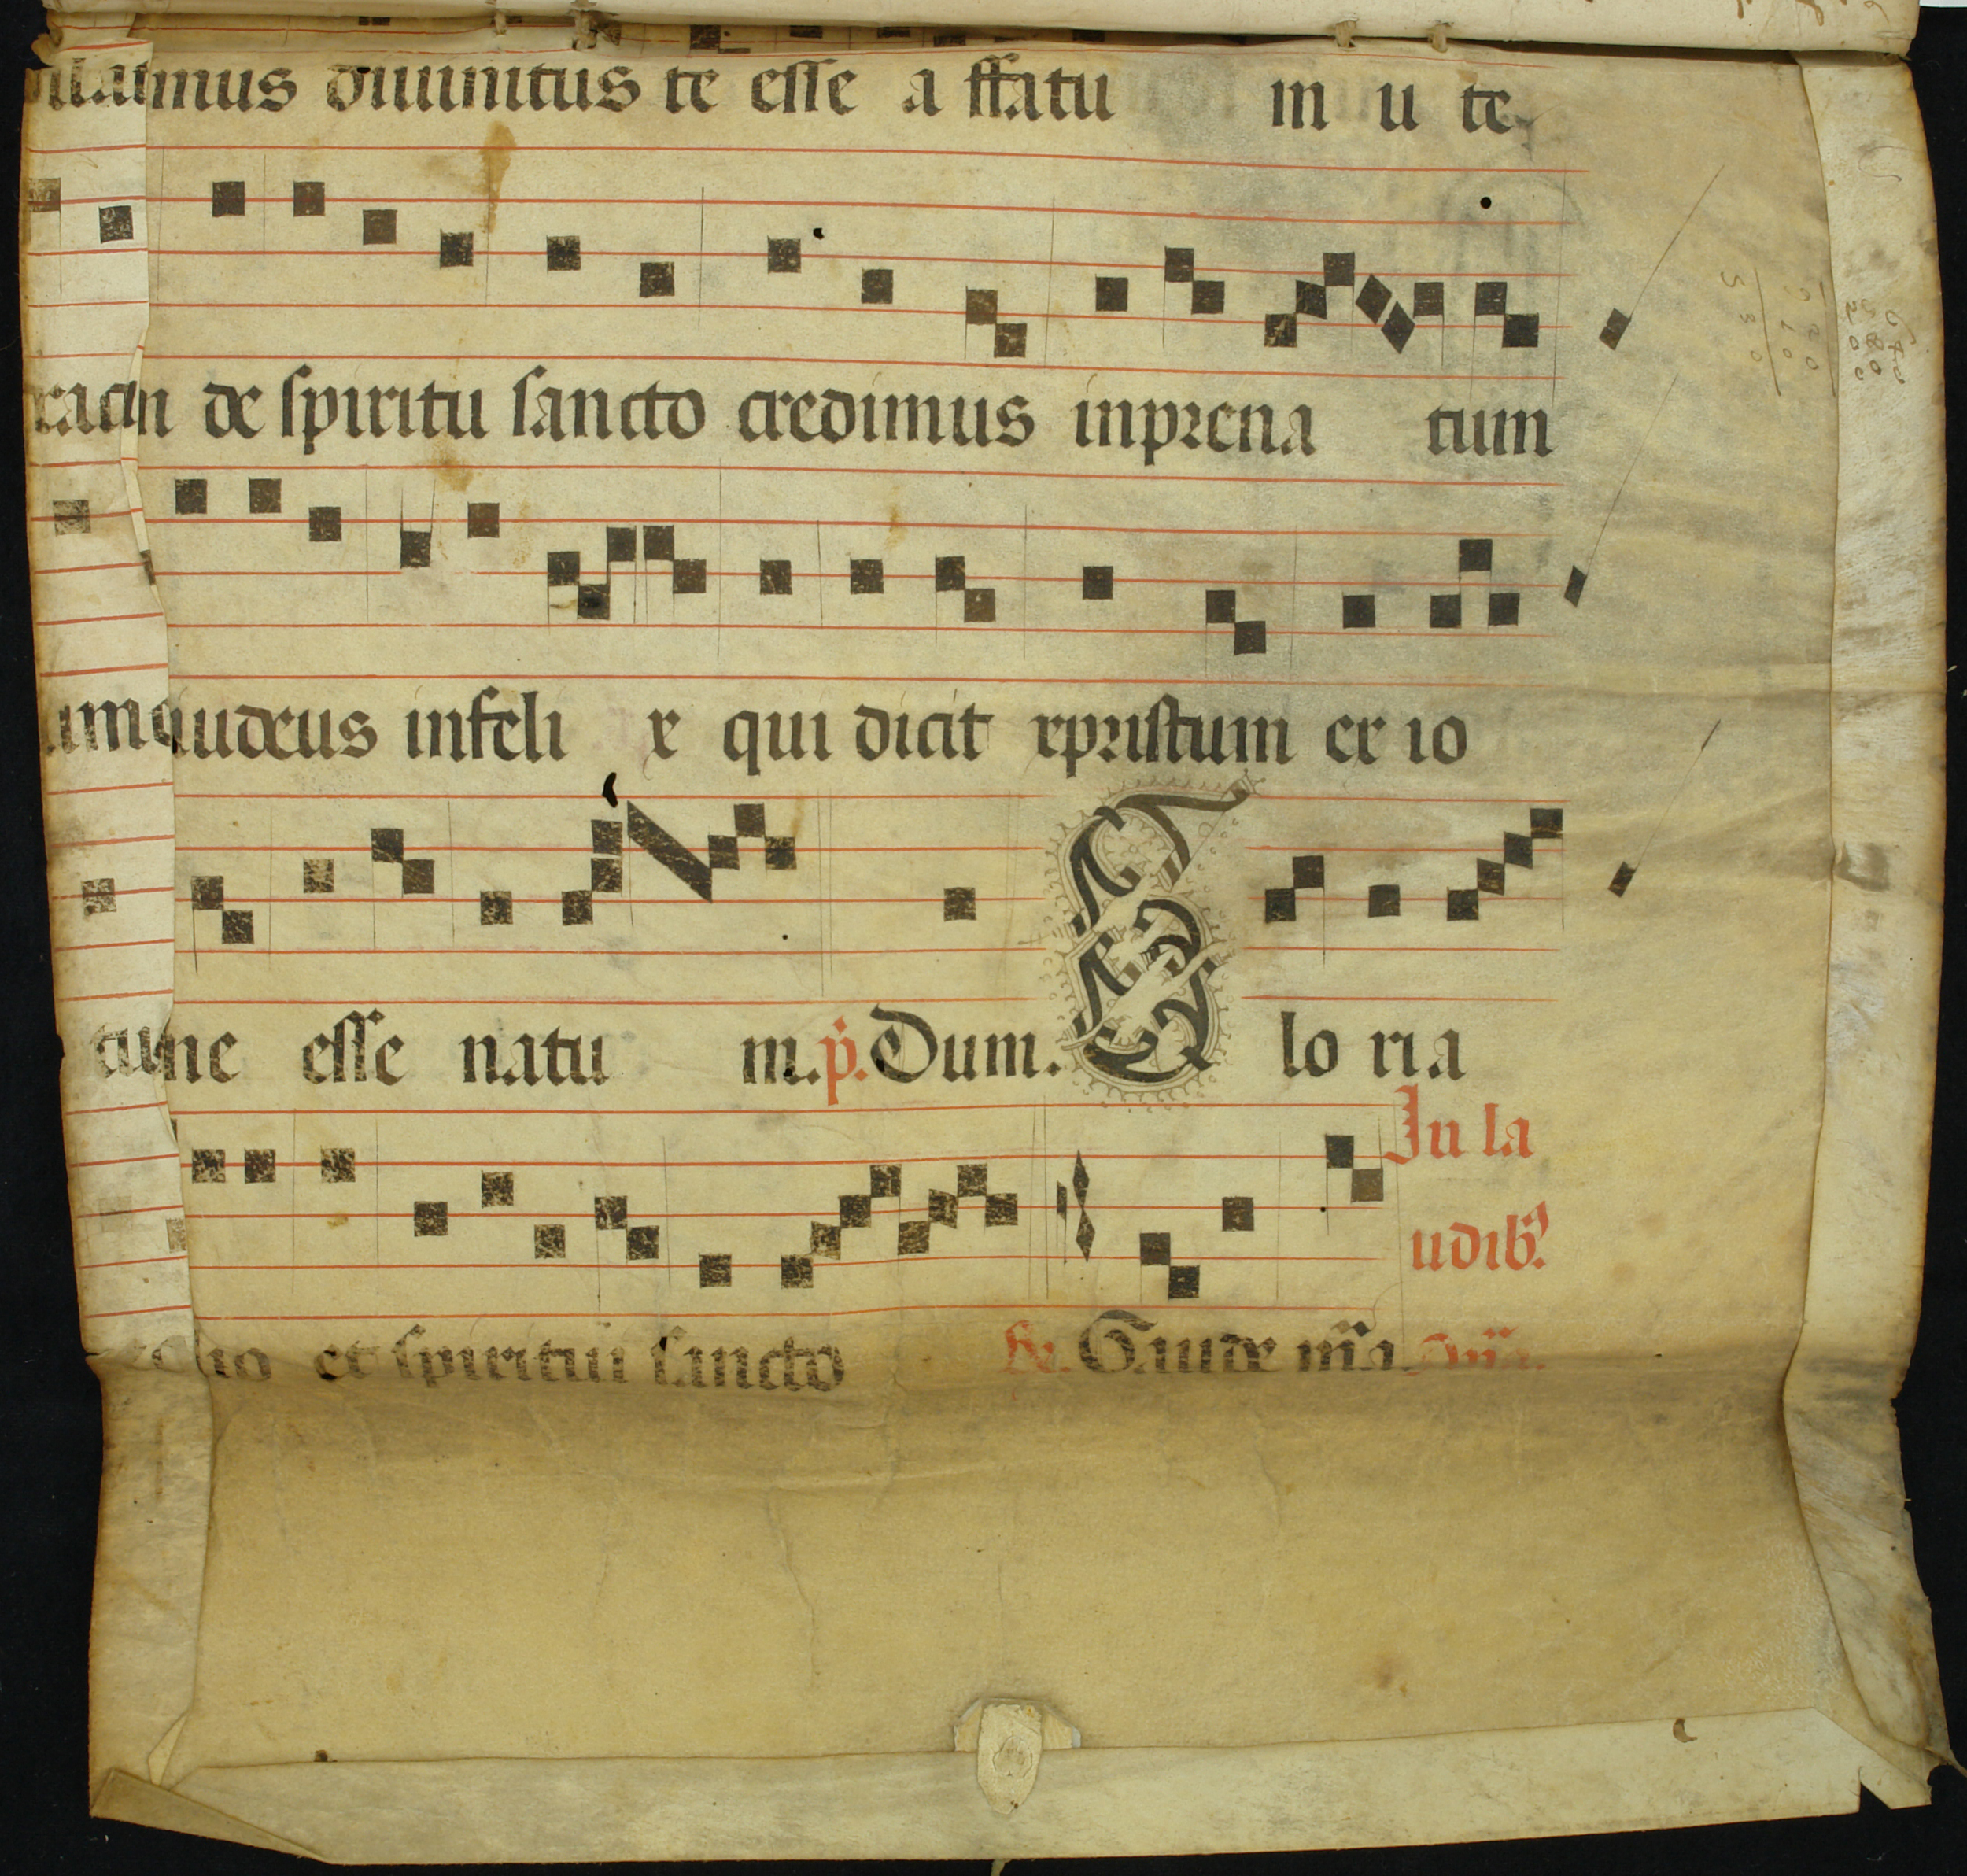 mus diuinitus te esse a ffatu m u te
de spiritu sancto credimus inprena tum
iudeus infeli x qui dicit xpristum ex io
ne esse natu m. p̄. Dum. G lo ria
In la
udibꝰ.
lio et spiritui sancto Gaude m̄a